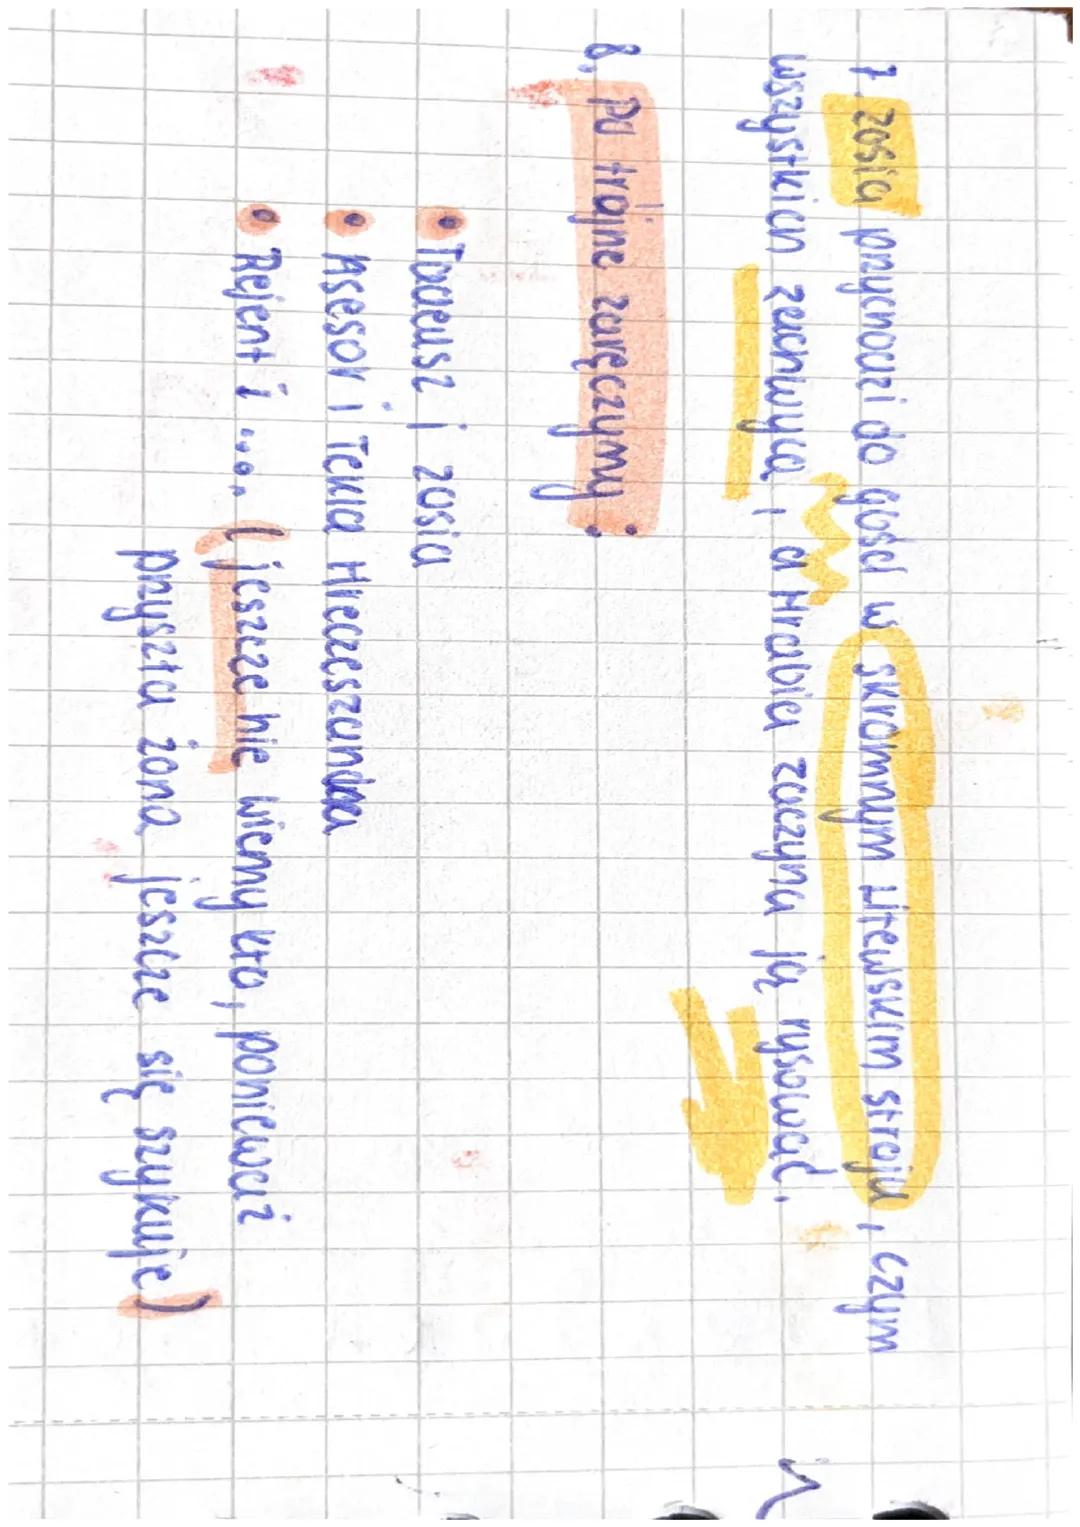 7. Zosia przychodzi do gości w skromnym Litewskim stroju, czym
wszystkich zachwyca, a Hrabia zaczyna ją rysować.
8. Po trójne zaręczyny:
• Tadeusz i Zosia
• Asesor i Tekla Hreczeszanka
• Rejent i ... (jeszcze nie wiemy kto, ponieważ
przyszła żona jeszcze się szykuje)